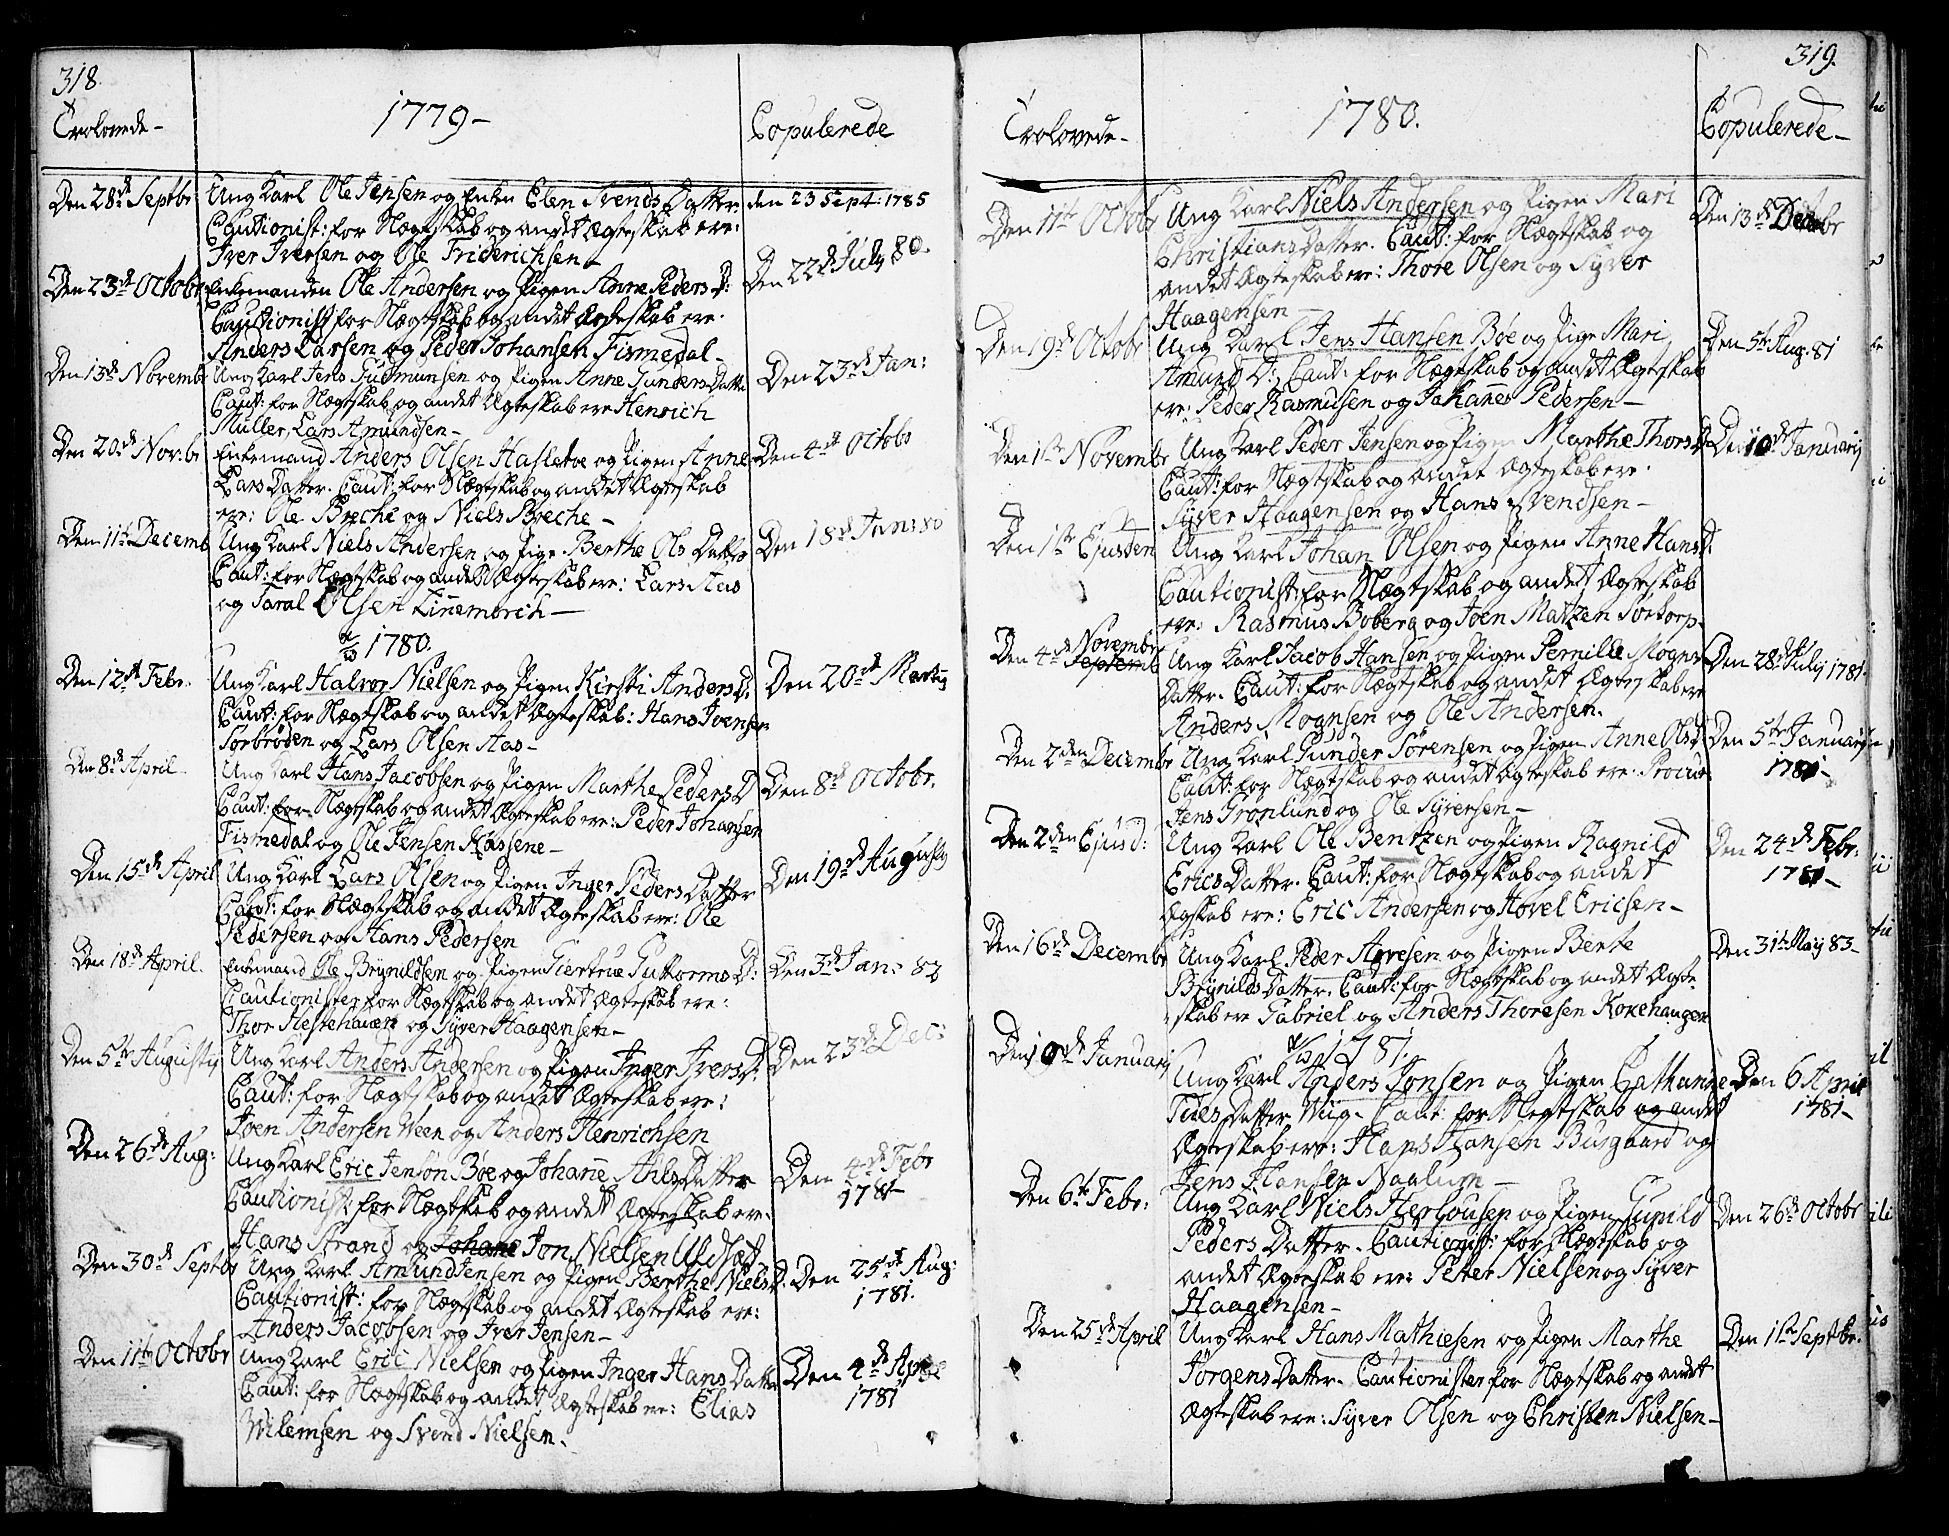 318.
Trolovede-
1779-
Copulerede
Den 28de Septbr
Ung Karl Ole Jensen og Enken Elen Svends Datter
den 23 Sept: 1785
Cautionist: for Nægtskab og andet Ægteskab ere:
Iver Iversen og Ole Friderichsen-
Den 23de Octobr
Enkemanden Ole Andersen og Pigen Anne Peders D:
Den 22de July 80.
Cautionist for Nægtskab og andet Ægteskab ere:
Anders Larsen og Peder Johansen Fismedal-
Den 13de Novembr
Ung Karl Jens Gudmunsen og Pigen Anne Gunders Datter
Den 23de Jan:
Caut: for Nægtskab og andet Ægteskab ere Henrich
Müller, Lars Amundsen-
Den 20de Nov:br
Enkemand Anders Olsen Hasletoe og Pigen Anne
Den 4de Octobr
Lars Datter. Caut: for Nægtskab og andet Ægteskab
ere: Ole Breche og Niels Breche-
Den 11te Decemb
Ung Karl Niels Andersen og Pige Berthe Ols Datter
Den 18de Jan: 80
Caut: for Nægtskab og andet Ægteskab ere: Lars Aas
og Taral Olsen Linnemorch-
1780.
Den 12te Febr.
Ung Karl Halvor Nielsen og Pigen Kirsti Anders D.
Den 20de Martij
Caut: for Nægtskab og andet Ægteskab: Hans Joensen
Sorbrøden og Lars Olsen Aas-
Den 8de April
Ung Karl Hans Jacobsen og Pigen Marthe Peders D
Den 8de Octobr.
Caut: for Nægtskab og andet Ægteskab ere: Peder Johansen
Fismedal og Ole Jensen Kassene-
Den 15de April
Ung Karl Lars Olsen og Pigen Inger Peders Datter
Den 19de Augusty
Caut: for Nægtskab og andet Ægteskab ere: Ole
Pedersen og Hans Pedersen
Den 18de April.
Enkemand Ole Brynildsen og Pigen Giertrue Guttorms D:
Den 3de Jan: 82
Cautionister for Nægtskab og andet Ægteskab ere:
Thor Hestehauen og Syver Haagensen-
Den 5te Augustij
Ung Karl Anders Andersen og Pigen Inger Ivers D:
Den 23de Dec:
Caut: for Nægtskab og andet Ægteskab ere:
Joen Andersen Ween og Anders Henrichsen
Den 26de Aug:
Ung Karl Eric Jenson Bøe og Johanne Ahls Datter
Den 4de Febr
1781-
Cautionist: for Nægtskab og andet Ægteskab ere:
Hans Strand og Jon Nielsen Uldsæt
Den 30de Septbr
Ung Karl Amund Jensen og Pigen Berthe Niels D.
Den 25de Aug:
1781.
Cautionist: for Nægtskab og andet Ægteskab ere:
Anders Jacobsen og Iver Jensen-
Den 11te Octobr
Ung Karl Eric Nielsen og Pigen Inger Hans Datter
Den 4de April
1781
Caut: for Nægtskab og andet Ægteskab ere: Elias
Wilemsen og Svend Nielsen.
319.
Trolovede-
1780.
Copulerede-
Den 11te Octobr
Ung Karl Niels Andersen og Pigen Mari
Den 13de Decbr
Christians Datter. Caut: for Nægtskab og
andet Ægteskab ere: Thore Olsen og Syver
Haagensen-
Den 19de Octobr
Ung Karl Jens Hansen Bøe og Pige Mari
Den 5te Aug. 81
Amund D: Caut: for Nægtskab og andet Ægteskab
ere: Peder Rasmusen og Johannes Pedersen-
Den 1ste Novembr
Ung Karl Peder Jensen og Pigen Marthe Thors D
Den 10de Januarij
Caut: for Nægtskab og andet Ægteskab ere:
Syver Haagensen og Hans Svendsen-
Den 1ste Ejusdem
Ung Karl Johan Olsen og Pigen Anne Hans D.
Cautionist: for Nægtskab og andet Ægteskab
ere: Rasmus Boberg og Joen Matzen Sortorp-
Den 4de Novembr
Ung Karl Jacob Hansen og Pigen Pernille Mogns
Den 28de Julij 1781.
Datter. Caut: for Nægtskab og andet Ægteskab ere
Anders Mognsen og Ole Andersen.
Den 2den Decembr
Ung Karl Gunder Sörensen og Pigen Anne Ols D
Den 5te Januarij
1781-
Caut: for Nægtskab og andet Ægteskab ere: Procur:
Jens Grönlund og Ole Syversen-
Den 2den Ejusd:
Ung Karl Ole Bentzen og Pigen Ragnild
Den 24de Febr:
1781-
Erics Datter. Caut: for Nægtskab og andet
Ægskab ere: Eric Andersen og Hovel Ericsen-
Den 16de Decembr
Ung Karl Peder Arvesen og Pigen Bente
Den 31te Maij 83-
Brynilds Datter. Caut: for Nægtskab og andet Ægte-
skab ere Gabriel og Anders Thoresen Kokehaugen
1781.
Den 10de Januarij
Ung Karl Anders Jonsen og Pigen Cathanne
Den 6 April
1781-
Tues Datter Wiig- Caut: for Negtskab og andet
Ægteskab ere: Hans Hansen Busgaard og
Jens Hansen Naalum-
Den 6te Febr:
Ung Karl Niels Herlousen og Pigen Gunild
Den 26de Octobr
Peders Datter. Cautionist: for Nægtskab og
andet Ægteskab ere: Peter Nielsen og Syver
Haagensen-
Den 25de April
Ung Karl Hans Mathiesen og Pigen Marthe
Den 1ste Septbr.
Jörgens Datter. Cautionister for Nægtskab og andet
Ægteskab ere: Syver Olsen og Christen Nielsen-